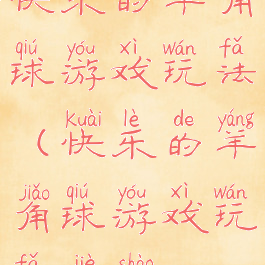 快乐的羊角
qiú yóu xì wán fǎ
球游戏玩法
kuài lè de yáng
(快乐的羊
jiǎo qiú yóu xì wán
角球游戏玩
fǎ jiè shào